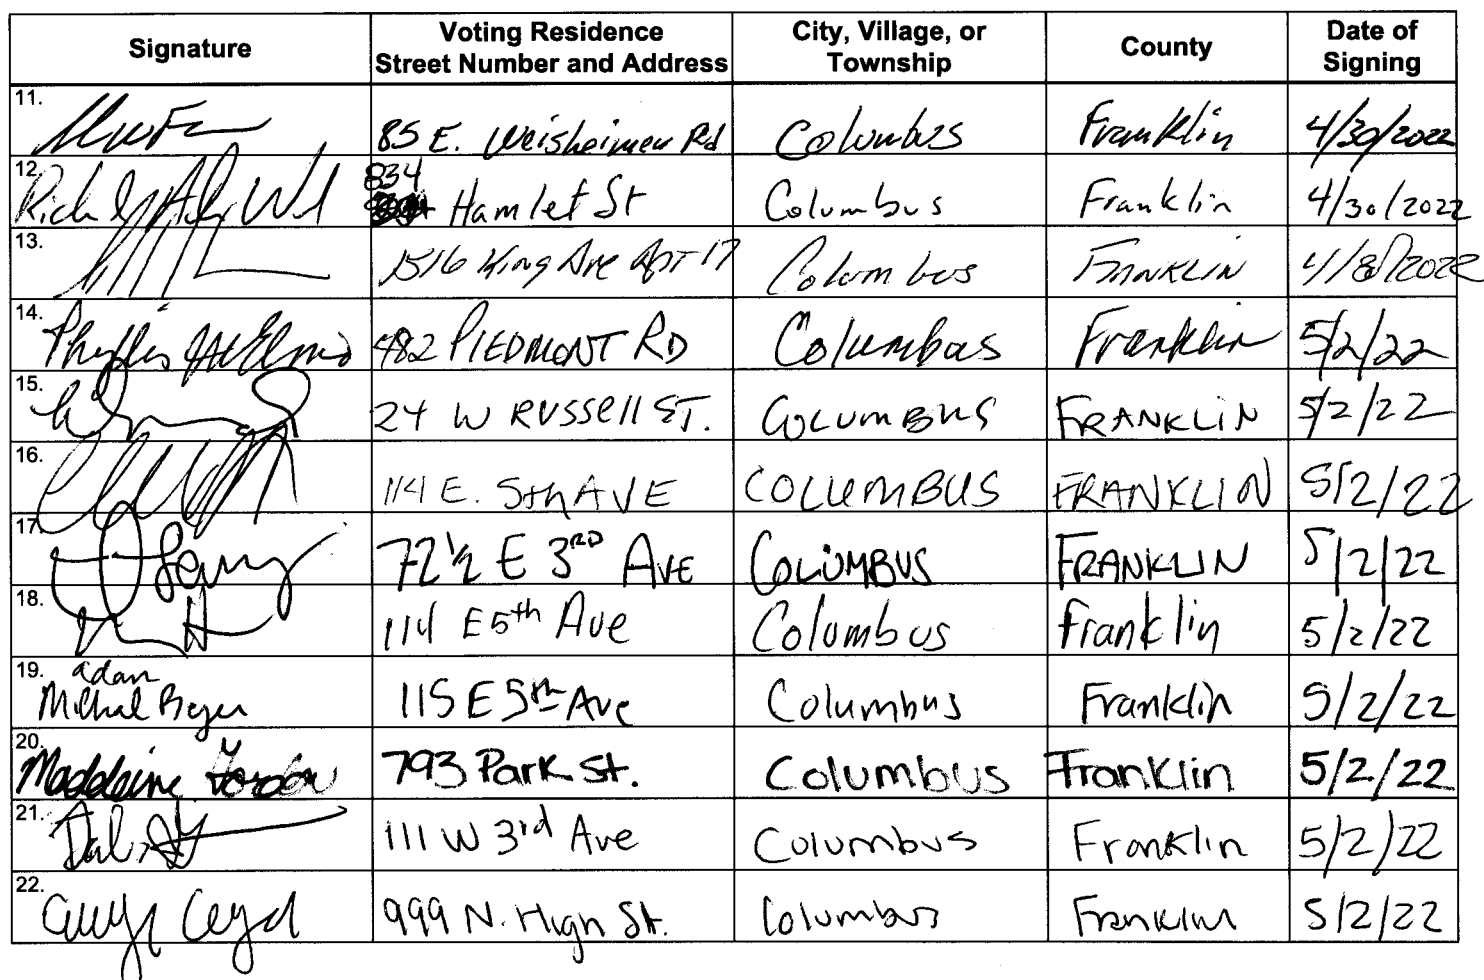 Signature Voting Residence Street Number and Address City, Village, or Township County Date of Signing
11. 85 E. Weisheimer Rd Columbus Franklin 4/30/2022
12. 834 Hamlet St Columbus Franklin 4/30/2022
13. 1516 King Ave Apt 17 Columbus FRANKLIN 2022
14. Phyllis 482 PIEDMONT RD Columbus Franklin 5/2/22
15. 24 W RUSSEll ST. COLUMBUS FRANKLIN 5/2/22
16. 114 E. 5th AVE COLUMBUS FRANKLIN 5/2/22
17. 72 1/2 E 3RD AVE COLUMBUS FRANKLIN 5/2/22
18. 114 E 5th Ave Columbus Franklin 5/2/22
19. adam Michael Beyer 115 E 5th Ave Columbus Franklin 5/2/22
20. Madeleine 793 Park St. Columbus Franklin 5/2/22
21. 111 W 3rd Ave Columbus Franklin 5/2/22
22. 999 N. High St. Columbus Franklin 5/2/22